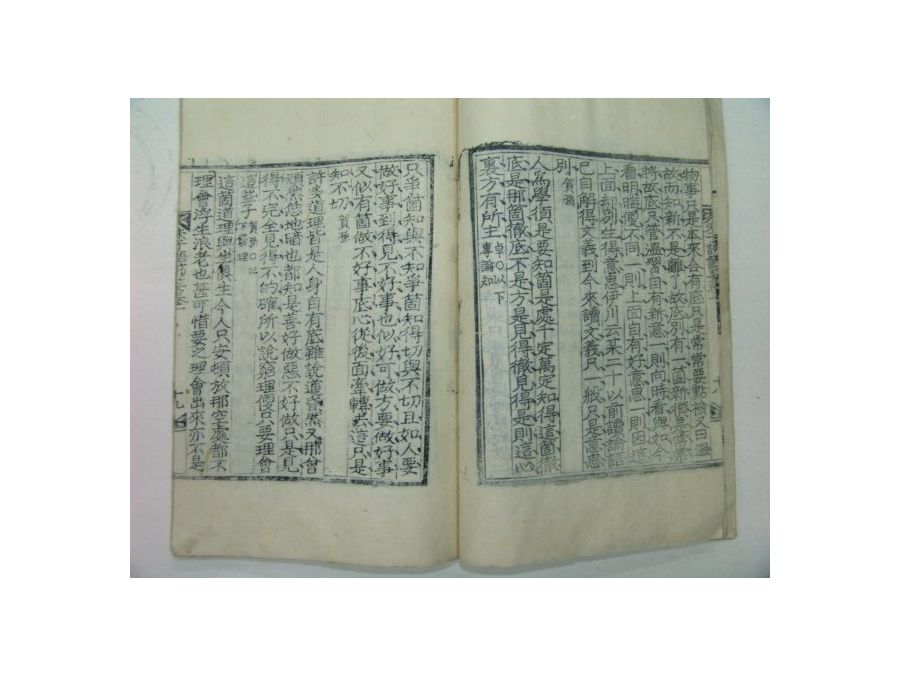 物事只是本來合有底只是常常要點檢又曰溫
故而知新不是離了故底別有一箇新須是常常
將故底只管溫習自有新意一則向時看與如今
看明晦便不同一則上面自有好意思一則因這
上面却別生得意思伊川云某二十以前讀論語
已自解得文義到今來讀文義只一般只是意思
別 賀孫
人爲學須是要知箇是處千定萬定知得這箇徹
底是那箇徹底不是方是見得徹見得是則這心
裏方有所主 卓○以下專論知
只爭箇知與不知爭箇知得切與不切且如人要
做好事到得見不好事也似好可做方要做好事
又似有箇做不好事底心從後面牽轉去這只是
知不切 賀孫
許多道理皆是人身自有底雖說道昏然又那曾
頑然恁地暗也都知是善好做惡不好做只是見
得不完全見得不的確所以說窮理便只要理會
這些子 賀孫○以下窮理
這箇道理與生俱生今人只安頓放那空處都不
理會浮生浪老也甚可惜要之理會出來亦不是
十八
十九